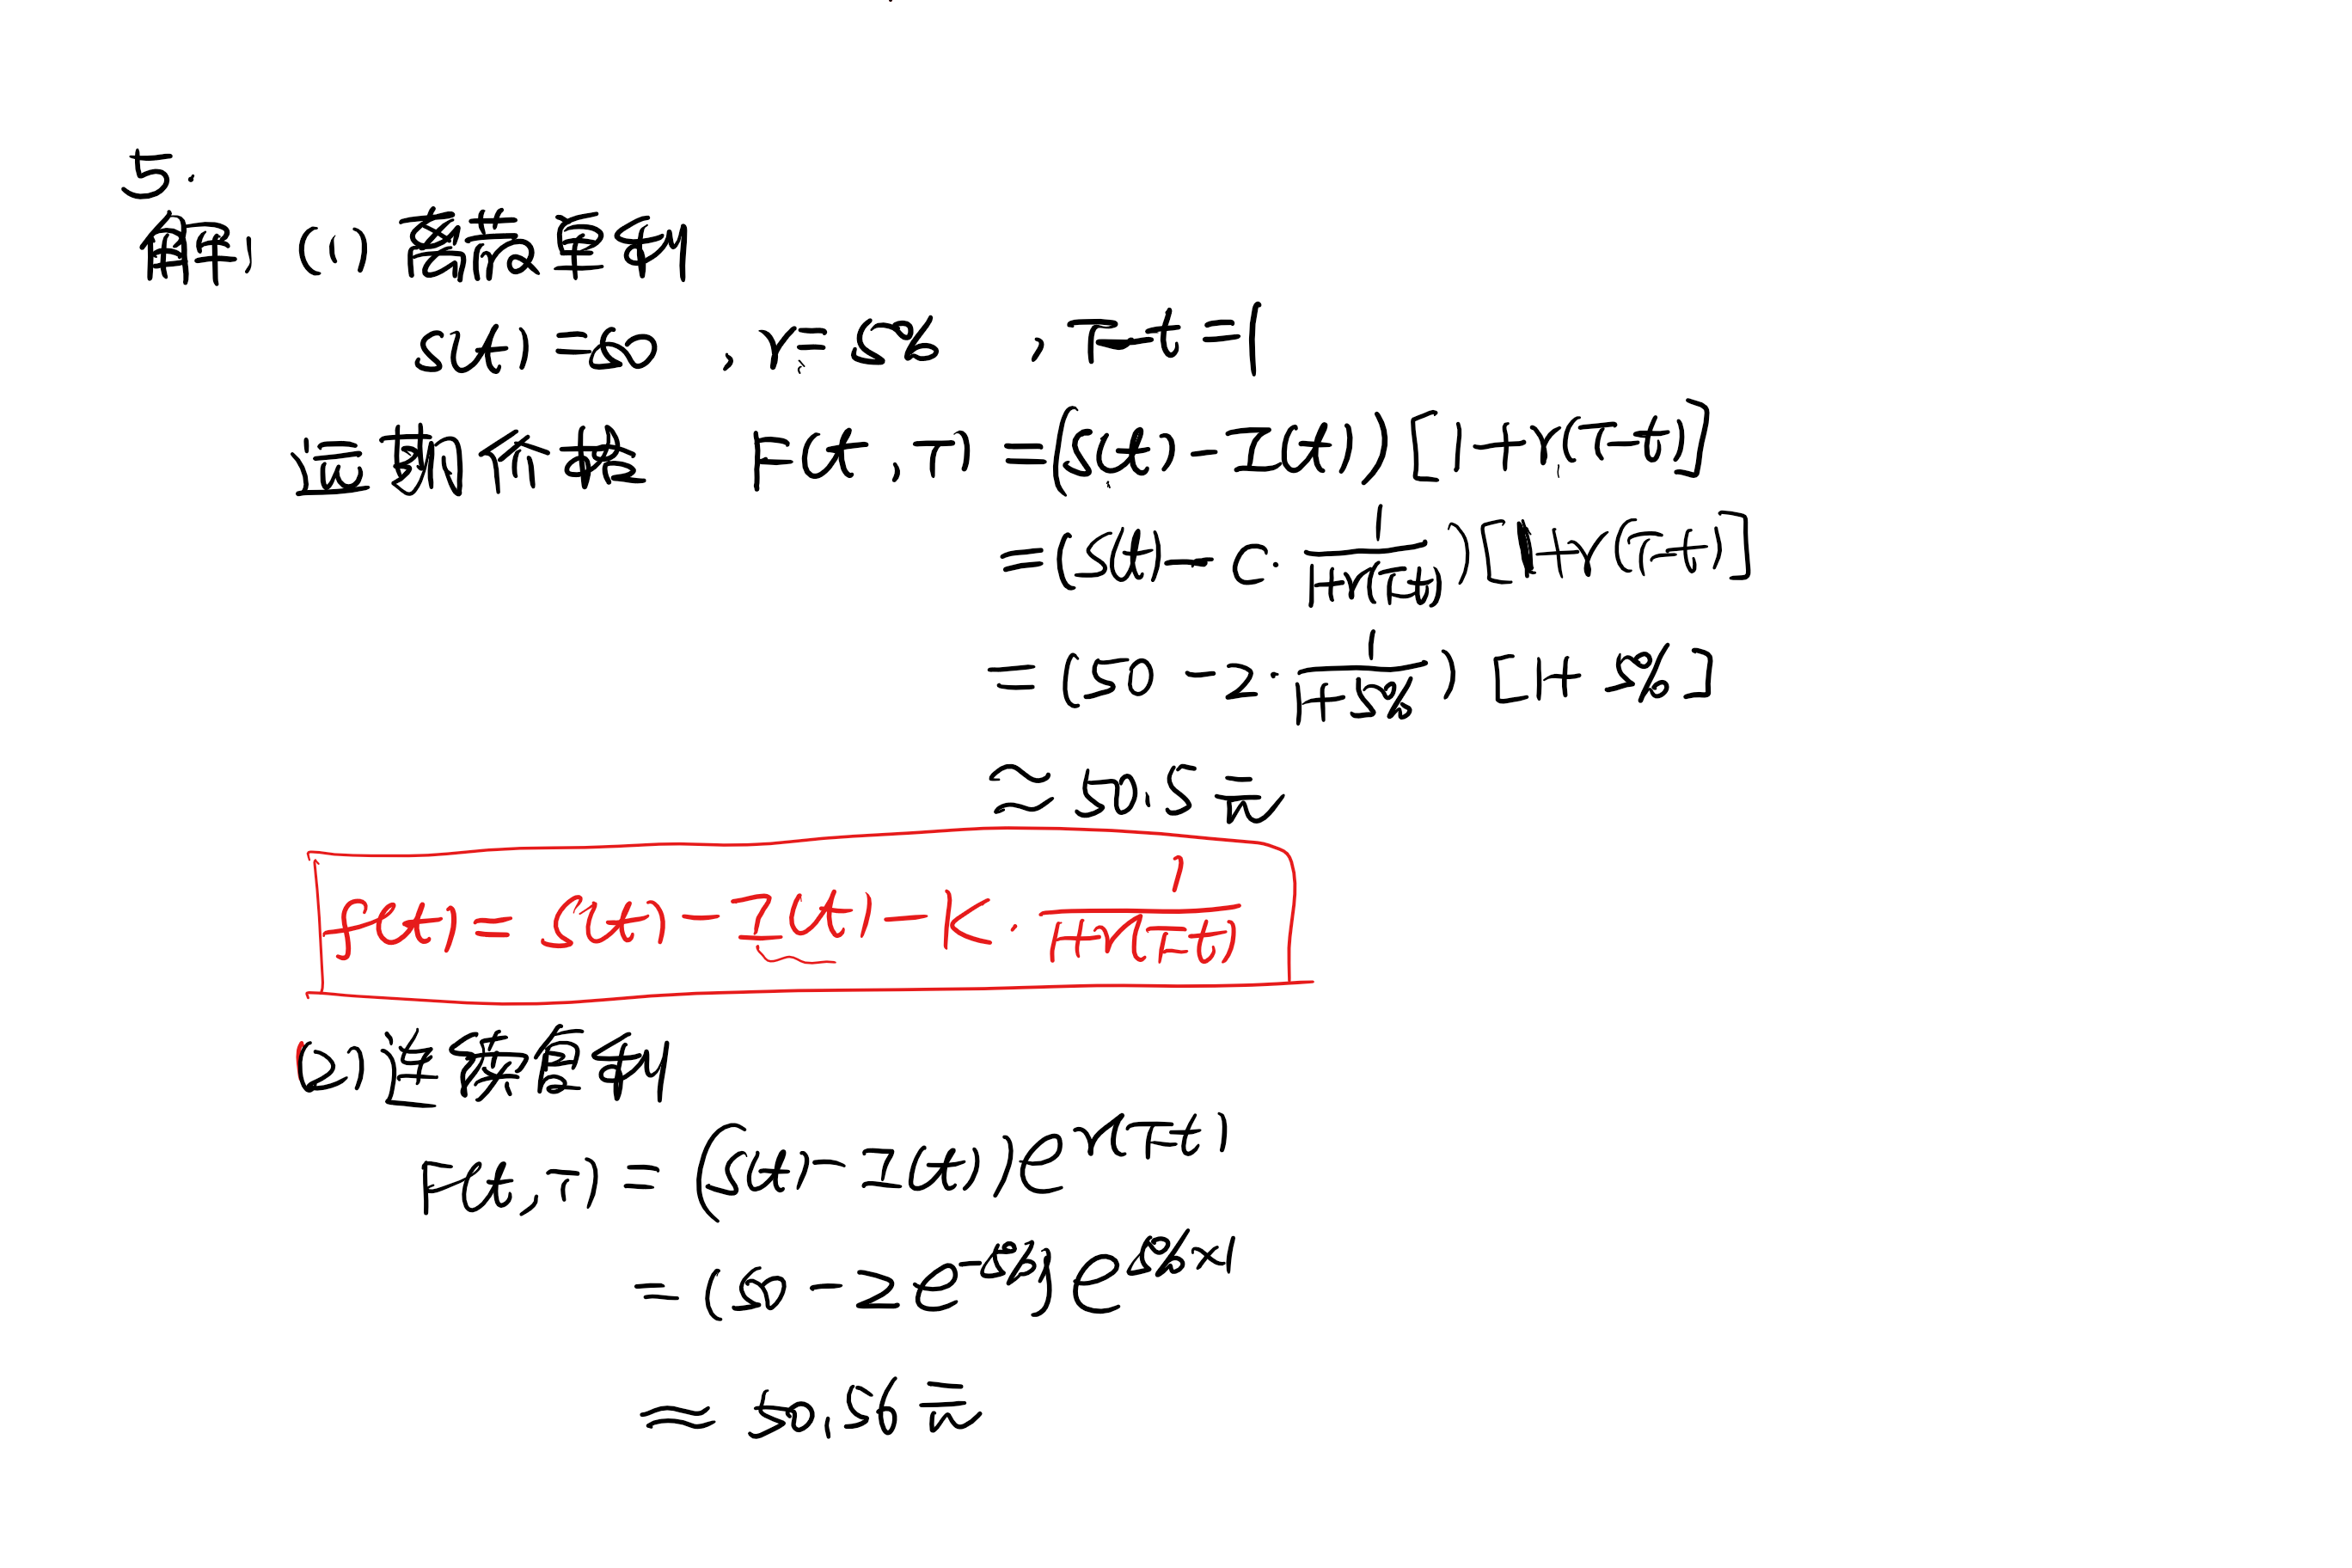 5.
解: (1) 离散复利
S(t) = 50 , r = 5% , T-t = 1
远期价格 F(t,T) = (S(t) - I(t)) [1 + r(T-t)]
= (S(t) - C · \frac{1}{1+r(T-t)}) [1 + r(T-t)]
= (50 - 2 · \frac{1}{1+5%}) [1 + 5%]
≈ 50.5 元
f(t) = S(t) - I(t) - K · \frac{1}{1+r(T-t)}
(2) 连续复利
F(t,T) = (S(t) - I(t)) e^{r(T-t)}
= (50 - 2e^{-5%}) e^{5%×1}
≈ 50.56 元